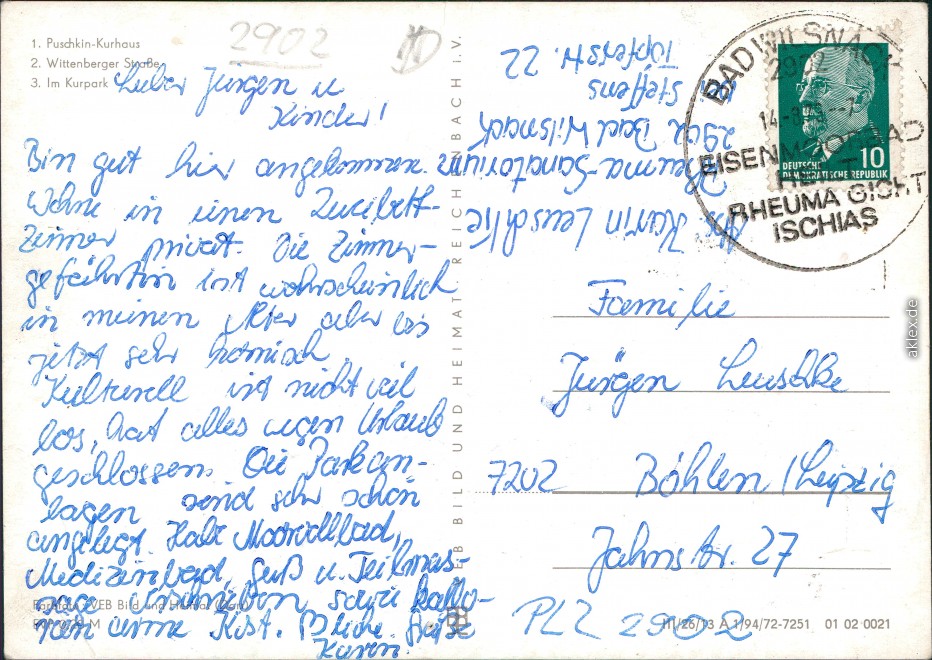 1. Puschkin-Kurhaus
2. Wittenberger Straße
3. Im Kurpark
2902
Lieber Jürgen u
Kinder!
Bin gut hier angekommen.
Wohne in einen Zweibett-
Zimmer privat. Die Zimmer-
gefährtin ist wahrscheinlich
in meinen Alter aber bis
jetzt sehr komisch.
Kulturell ist nicht viel
los, hat alles wegen Urlaub
geschlossen. Die Parkan-
lagen sind sehr schön
angelegt. Habe Moorvollbad,
Medizinbad, Guß u. Teilmas-
sage
sowie
Kist.
Karin
Farbfoto: VEB Bild und Heimat
VEB BILD UND HEIMAT REICHENBACH I. V.
Abs. Karin Leuschke
Rheuma-Sanatorium
Bad Wilsnack
bei Steffens
Töpferstr. 22
BAD WILSNACK
2902
EISENMOORBAD
HEILT
RHEUMA GICHT
ISCHIAS
10
DEUTSCHE
DEMOKRATISCHE REPUBLIK
Familie
Jürgen Leuschke
7202 Böhlen/Leipzig
Jahnstr. 27
PLZ 2902
III/26/13 A 1/94/72-7251 01 02 0021
aklex.de